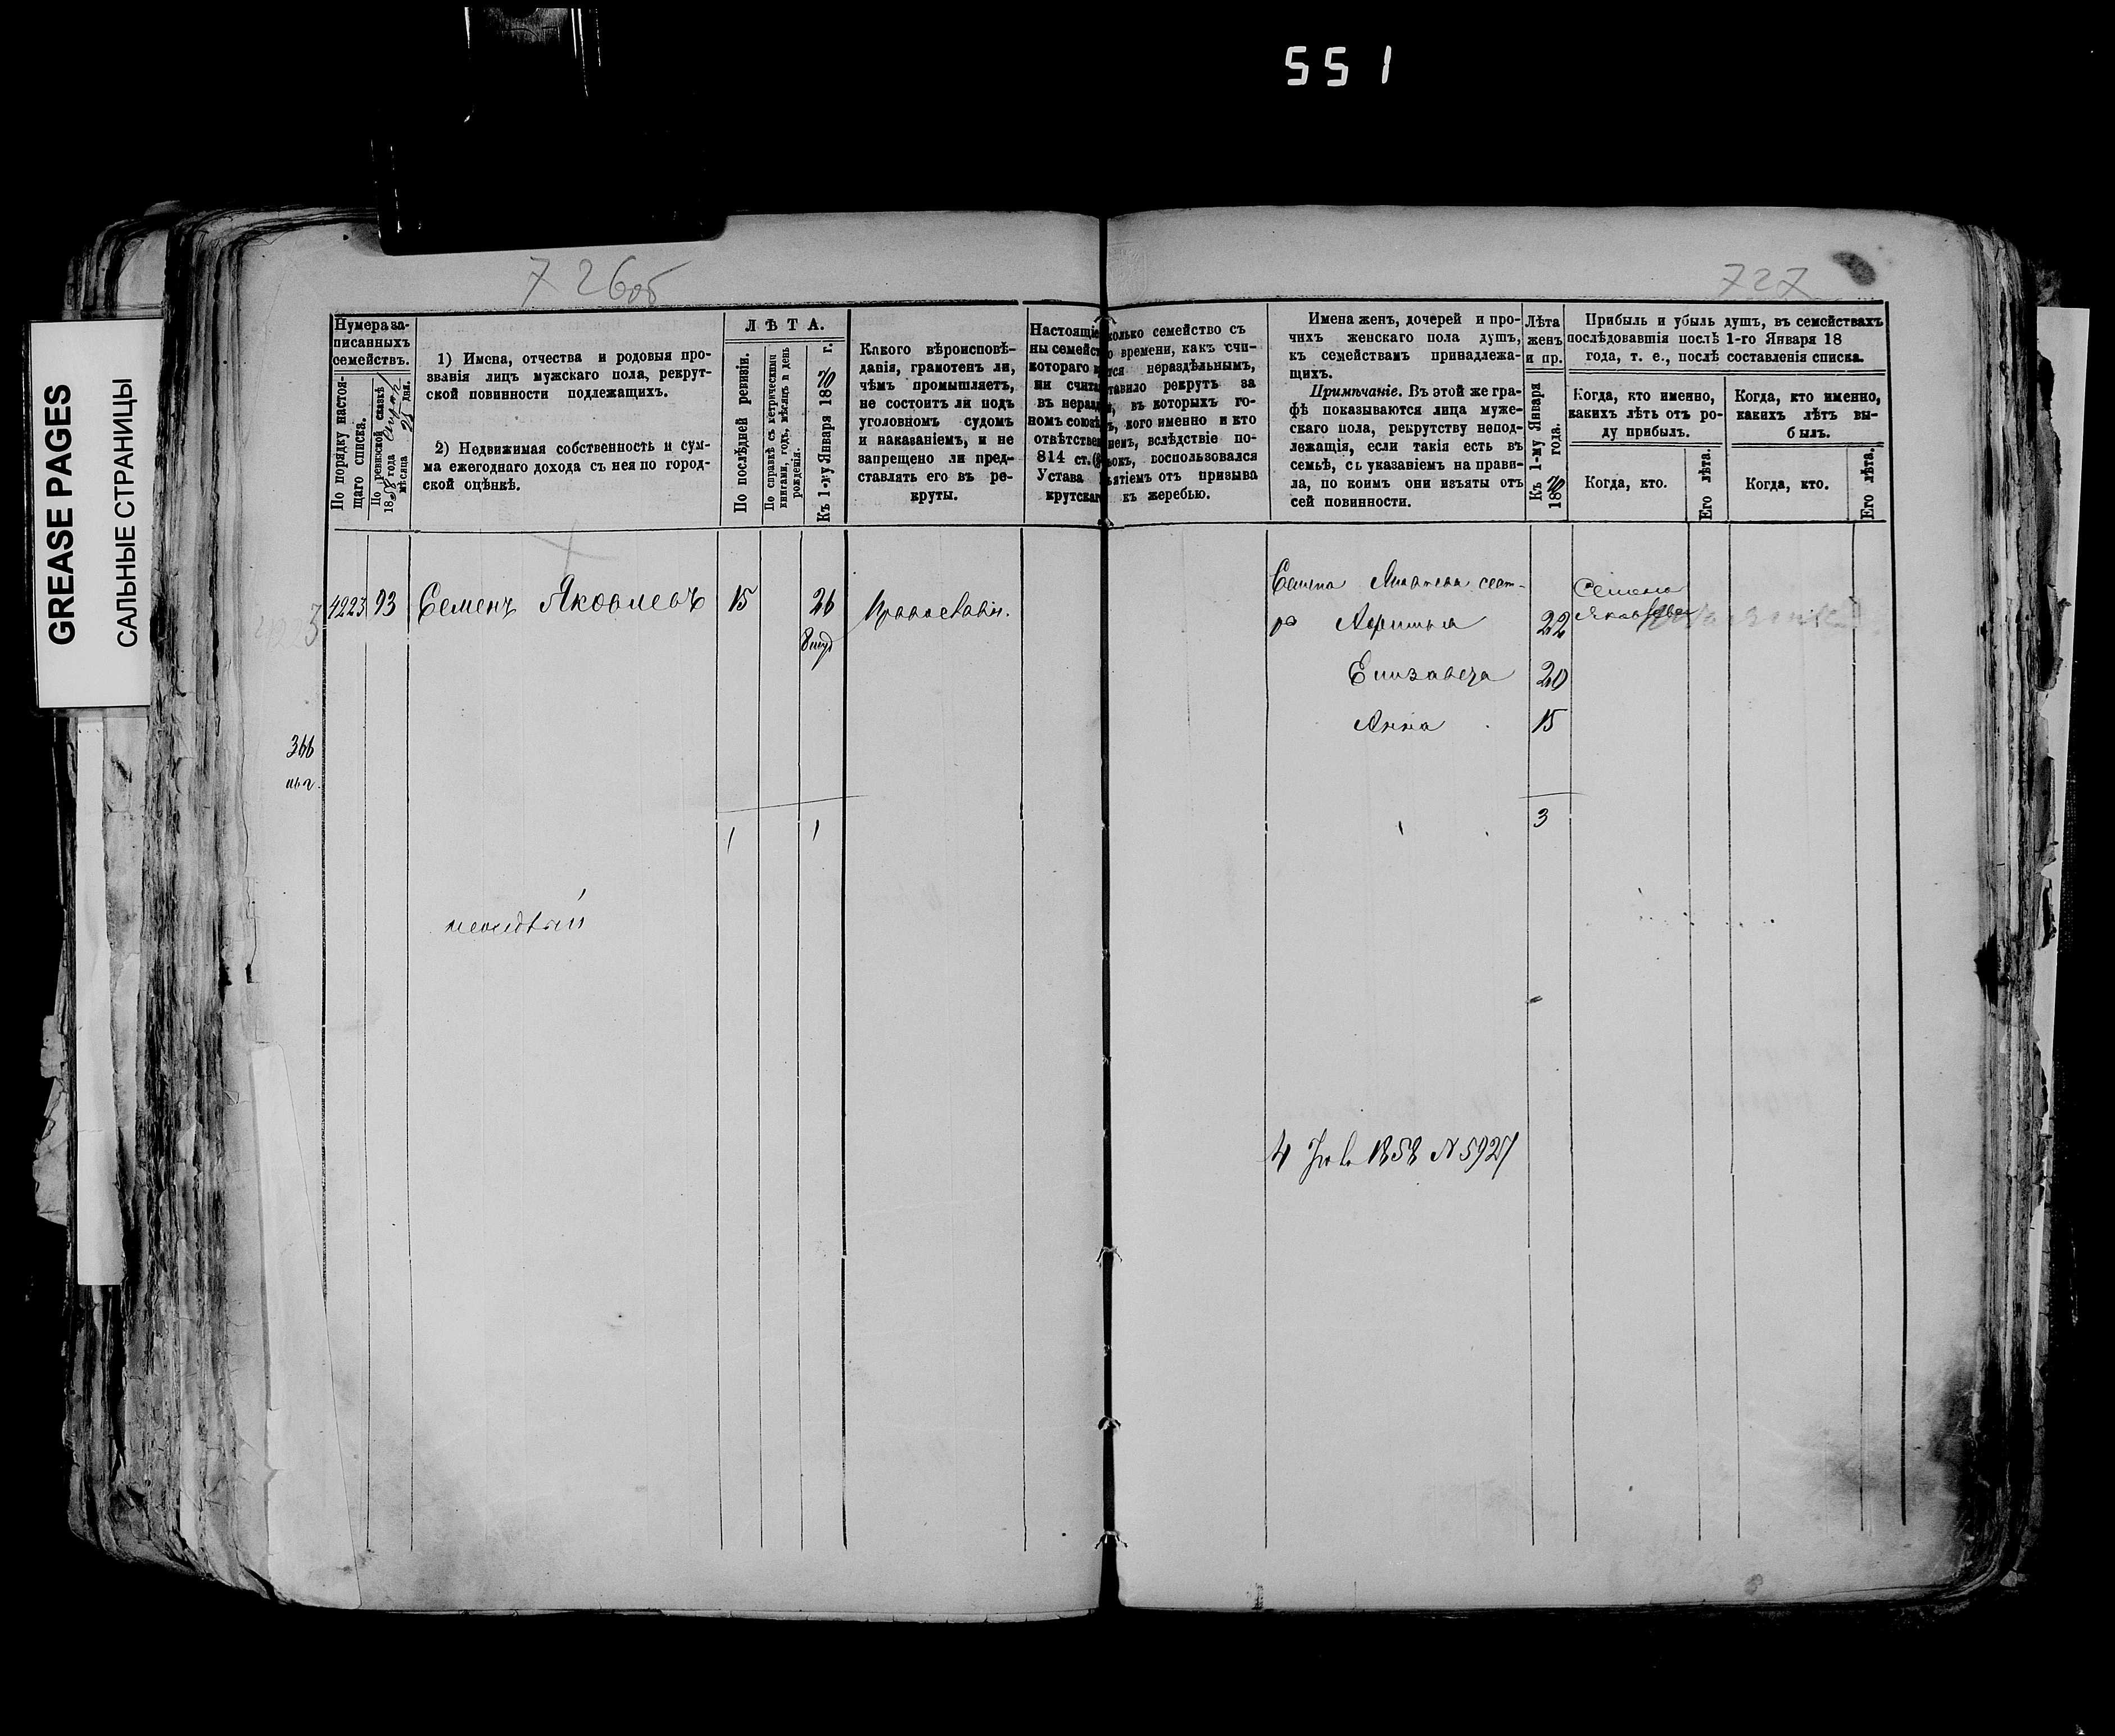 551
GREASE PAGES
САЛЬНЫЕ СТРАНИЦЫ
726об
Нумера за-
писанныхъ
семействъ.
По порядку настоя-
щаго списка.
По ревизской сказкѣ
18 года
мѣсяца дня.
1) Имена, отчества и родовыя про-
званія лицъ мужскаго пола, рекрут-
ской повинности подлежащихъ.
2) Недвижимая собственность и сум-
ма ежегоднаго дохода съ нея по город-
ской оцѣнкѣ.
ЛѢТА.
По послѣдней ревизіи.
По справкѣ съ метрическими
книгами, годъ, мѣсяцъ и день
рожденія.
Къ 1-му Января 1870 г.
Какого вѣроисповѣ-
данія, грамотенъ ли,
чѣмъ промышляетъ,
не состоитъ ли подъ
уголовномъ судомъ
и наказаніемъ, и не
запрещено ли пред-
ставлять его въ ре-
круты.
Настоящіе
ны семейст
котораго
ни счита
въ неразд
номъ союзѣ
отвѣтствен
814 ст.
Устава
крутскаг
4223 93 Семенъ Яковлевъ 15 26 Православн.
366
1 1
727
колько семейство съ
о времени, какъ счи-
тся нераздѣльнымъ,
тавило рекрутъ за
, въ которыхъ го-
ъ, кого именно и кто
немъ, вслѣдствіе по-
ьокъ, воспользовался
ъятіемъ отъ призыва
къ жеребью.
Имена женъ, дочерей и про-
чихъ женскаго пола душъ,
къ семействамъ принадлежа-
щихъ.
Примѣчаніе. Въ этой же гра-
фѣ показываются лица муже-
скаго пола, рекрутству непод-
лежащія, если такія есть въ
семьѣ, съ указаніемъ на прави-
ла, по коимъ они изъяты отъ
сей повинности.
Лѣта
женъ
и пр.
Къ 1-му Января
1870 года.
Прибыль и убыль душъ, въ семействахъ
послѣдовавшія послѣ 1-го Января 18
года, т. е., послѣ составленія списка.
Когда, кто именно,
какихъ лѣтъ отъ ро-
ду прибылъ.
Когда, кто именно,
какихъ лѣтъ вы-
былъ.
Когда, кто.
Его лѣта.
Когда, кто.
Его лѣта.
Семена Яковлева сест-
ра 22
Елизавета 20
Анна 15
3
1858 N 5927